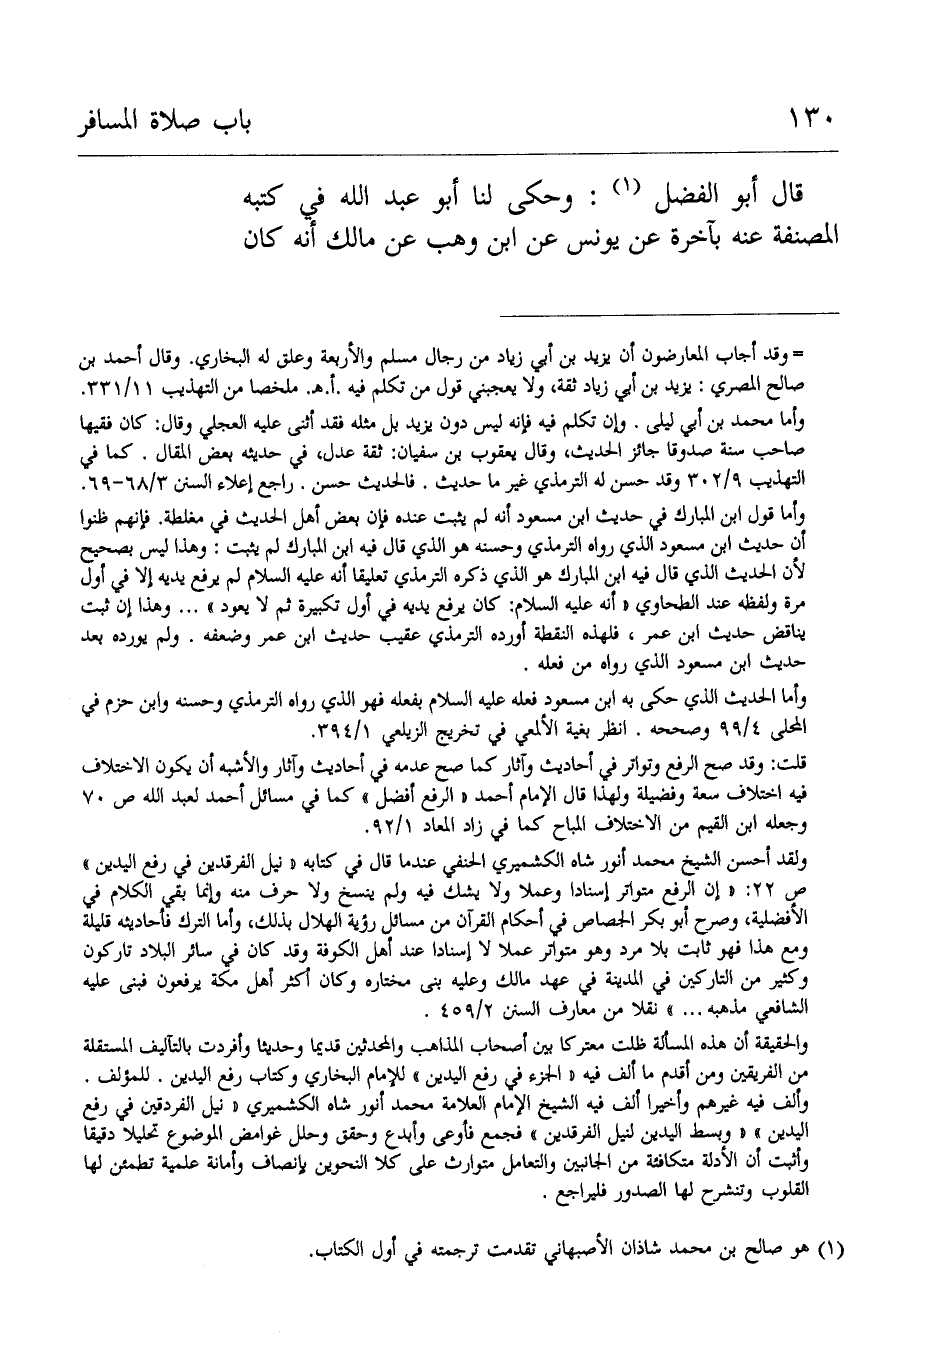 ١٣٠ باب صلاة المسافر
قال أبو الفضل (١) : وحكى لنا أبو عبد الله في كتبه
المصنفة عنه بآخرة عن يونس عن ابن وهب عن مالك أنه كان
= وقد أجاب المعارضون أن يزيد بن أبي زياد من رجال مسلم والأربعة وعلق له البخاري. وقال أحمد بن
صالح المصري : يزيد بن أبي زياد ثقة، ولا يعجبني قول من تكلم فيه .أ.هـ. ملخصا من التهذيب ٣٣١/١١.
وأما محمد بن أبي ليلى . وإن تكلم فيه فإنه ليس دون يزيد بل مثله فقد أثنى عليه العجلي وقال: كان فقيها
صاحب سنة صدوقا جائز الحديث، وقال يعقوب بن سفيان: ثقة عدل، في حديثه بعض المقال . كما في
التهذيب ٣٠٢/٩ وقد حسن له الترمذي غير ما حديث . فالحديث حسن . راجع إعلاء السنن ٦٨/٣-٦٩.
وأما قول ابن المبارك في حديث ابن مسعود أنه لم يثبت عنده فإن بعض أهل الحديث في مغلطة. فإنهم ظنوا
أن حديث ابن مسعود الذي رواه الترمذي وحسنه هو الذي قال فيه ابن المبارك لم يثبت : وهذا ليس بصحيح
لأن الحديث الذي قال فيه ابن المبارك هو الذي ذكره الترمذي تعليقا أنه عليه السلام لم يرفع يديه إلا في أول
مرة ولفظه عند الطحاوي « أنه عليه السلام: كان يرفع يديه في أول تكبيرة ثم لا يعود » ... وهذا إن ثبت
يناقض حديث ابن عمر ، فلهذه النقطة أورده الترمذي عقيب حديث ابن عمر وضعفه . ولم يورده بعد
حديث ابن مسعود الذي رواه من فعله .
وأما الحديث الذي حكى به ابن مسعود فعله عليه السلام بفعله فهو الذي رواه الترمذي وحسنه وابن حزم في
المحلى ٩٩/٤ وصححه . انظر بغية الألمعي في تخريج الزيلعي ٣٩٤/١.
قلت: وقد صح الرفع وتواتر في أحاديث وآثار كما صح عدمه في أحاديث وآثار والأشبه أن يكون الاختلاف
فيه اختلاف سعة وفضيلة ولهذا قال الإمام أحمد « الرفع أفضل » كما في مسائل أحمد لعبد الله ص ٧٠
وجعله ابن القيم من الاختلاف المباح كما في زاد المعاد ٩٢/١.
ولقد أحسن الشيخ محمد أنور شاه الكشميري الحنفي عندما قال في كتابه « نيل الفرقدين في رفع اليدين »
ص ٢٢: « إن الرفع متواتر إسنادا وعملا ولا يشك فيه ولم ينسخ ولا حرف منه وإنما بقي الكلام في
الأفضلية، وصرح أبو بكر الجصاص في أحكام القرآن من مسائل رؤية الهلال بذلك، وأما الترك فأحاديثه قليلة
ومع هذا فهو ثابت بلا مرد وهو متواتر عملا لا إسنادا عند أهل الكوفة وقد كان في سائر البلاد تاركون
وكثير من التاركين في المدينة في عهد مالك وعليه بنى مختاره وكان أكثر أهل مكة يرفعون فبنى عليه
الشافعي مذهبه ... » نقلا من معارف السنن ٤٥٩/٢ .
والحقيقة أن هذه المسألة ظلت معتركا بين أصحاب المذاهب والمحدثين قديما وحديثا وأفردت بالتآليف المستقلة
من الفريقين ومن أقدم ما ألف فيه « الجزء في رفع اليدين » للإمام البخاري وكتاب رفع اليدين . للمؤلف .
وألف فيه غيرهم وأخيرا ألف فيه الشيخ الإمام العلامة محمد أنور شاه الكشميري « نيل الفردقين في رفع
اليدين » « وبسط اليدين لنيل الفرقدين » فجمع فأوعى وأبدع وحقق وحلل غوامض الموضوع تحليلا دقيقا
وأثبت أن الأدلة متكافئة من الجانبين والتعامل متوارث على كلا النحوين بإنصاف وأمانة علمية تطمئن لها
القلوب وتنشرح لها الصدور فليراجع .
(١) هو صالح بن محمد شاذان الأصبهاني تقدمت ترجمته في أول الكتاب.